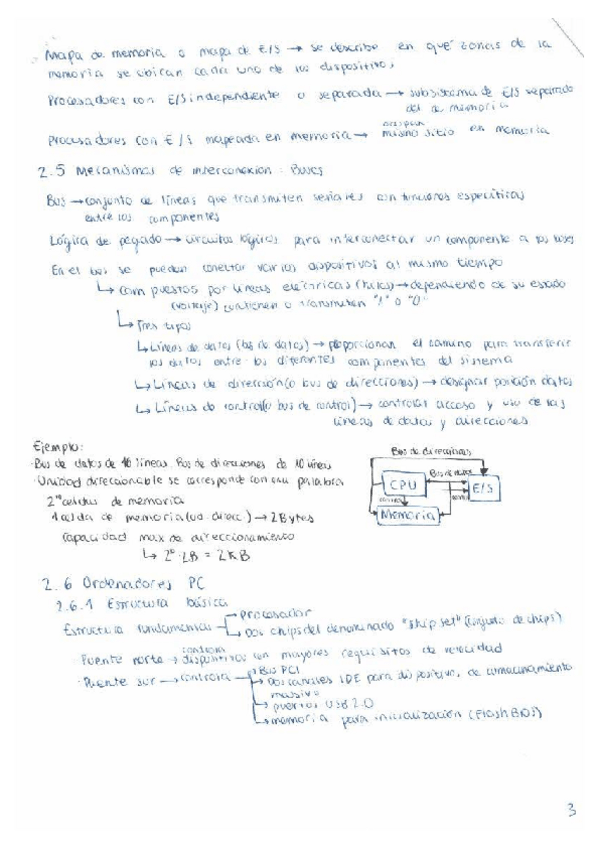 Mapa de memoria o mapa de E/S → se describe en qué zonas de la
memoria se ubican cada uno de los dispositivos
Procesadores con E/S independiente o separada → subsistema de E/S separado
del de memoria
Procesadores con E/S mapeada en memoria → ocupan mismo sitio en memoria
2.5 Mecanismos de interconexion: Buses
Bus → conjunto de líneas que transmiten señales con funciones específicas
entre los componentes
Lógica de pegado → circuitos lógicos para interconectar un componente a los buses
En el bus se pueden conectar varios dispositivos al mismo tiempo
↳ compuestos por líneas eléctricas (hilos) → dependiendo de su estado
(voltaje) contienen o transmiten "1" o "0"
↳ Tres tipos
↳ Líneas de datos (bus de datos) → proporcionan el camino para transferir
los datos entre los diferentes componentes del sistema
↳ Líneas de dirección (o bus de direcciones) → designar posición datos
↳ Líneas de control (o bus de control) → controlar acceso y uso de las
líneas de datos y direcciones
Ejemplo:
· Bus de datos de 16 líneas. Bus de direcciones de 10 líneas
· Unidad direccionable se corresponde con una palabra
2¹⁰ celdas de memoria
1 celda de memoria (ud. direcc) → 2 Bytes
Capacidad max de direccionamiento
↳ 2¹⁰ · 2B = 2KB
Bus de direcciones
Bus de datos
CPU
E/S
control
Memoria
2.6 Ordenadores PC
2.6.1 Estructura básica
Estructura fundamental
→ Procesador
→ Dos chips del denominado "chip set" (conjunto de chips)
· Puente norte → controla dispositivos con mayores requisitos de velocidad
· Puente sur → controla
→ Bus PCI
→ Dos canales IDE para dispositivo, de almacenamiento
masivo
→ puertos USB 2.0
→ memoria para inicialización (Flash BIOS)
3